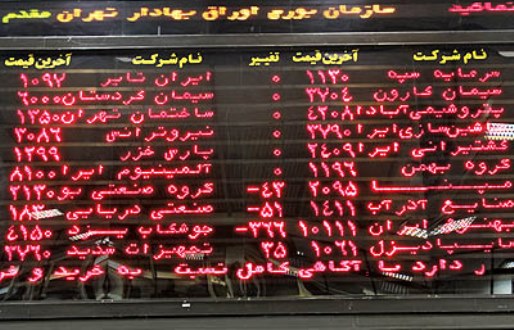 سازمان بورس اوراق بهادار تهران مقدم
نام شرکت آخرین قیمت تغییر نام شرکت آخرین قیمت
سرمایه سپه ۱۱۳۰ ۰ ایران تایر ۱۰۹۲
سیمان کارون ۲۷۰۴ ۰ سیمان کردستان ۶۰۰۰
پتروشیمی آبادا ۴۲۰۸ ۰ ساختمان تهران ۱۳۵۰
ماشین‌سازی ایرا ۲۷۹۰ ۰ نیروترانس ۳۰۸۶
کشتیرانی ایرا ۲۴۰۹ ۰ پارس خزر ۱۳۹۹
گروه بهمن ۱۱۹۶ ۰ آلمینیوم ایرا ۸۱۰۰
۲۰۹۵ -۴۳ گروه صنعتی بو ۲۱۳۰
صنایع آذرآب ۱۴۱۱ -۵۱ صنعتی دریایی ۱۸۳
ایران ۱۰۱۱۱ -۳۶۶ جوشکاب یزد ۴۱۵۰
تایپادیزل ۱۰۶۱ ۳۵ تجهیزات سدید ۲۷۶۰
ر دارد تا آگاهی کامل نسبت به خرید و فر